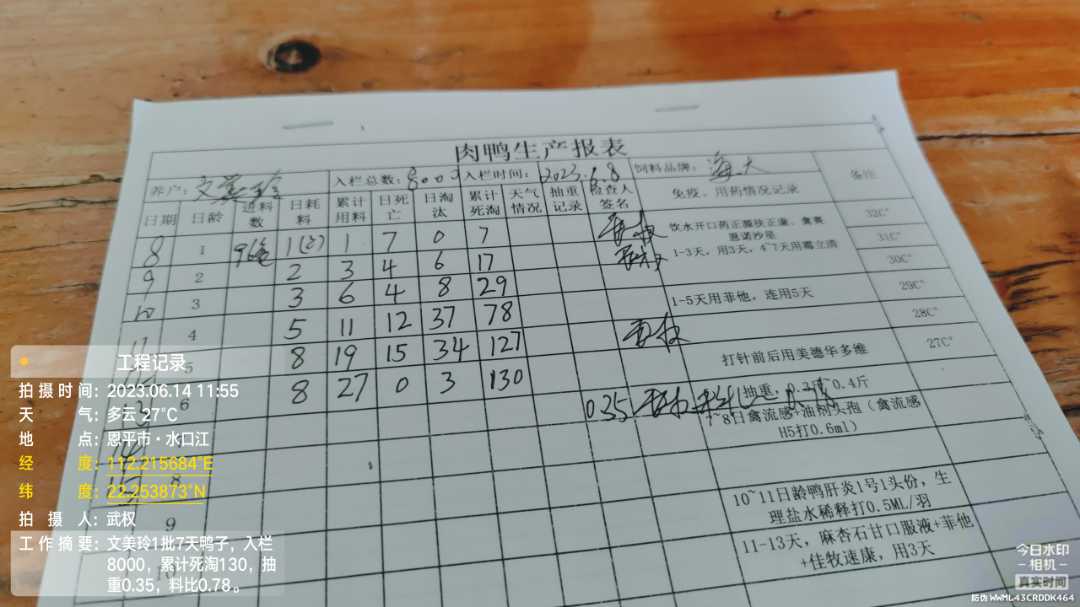 肉鸭生产报表
养户：文美玲 入栏总数：8000 入栏时间：2023.6.8 饲料品牌：海大 备注
日期 日龄 进料数 日耗料 累计用料 日死亡 日淘汰 累计死淘 天气情况 抽重记录 检查人签名 免疫、用药情况记录
8 1 1 7 0 7 武权 饮水开口药正腹肤正康、禽赛 32C°
恩诺沙星
9 2 2 3 4 6 17 武权 1-3天，用3天，4-7天用霉立清 31C°
30C°
10 3 3 6 4 8 29 1-5天用菲他，连用5天 29C°
4 5 11 12 37 78 武权 28C°
5 8 19 15 34 127 打针前后用美德华多维 27C°
6 8 27 0 3 130 0.35 抽重：0.4斤
8日禽流感+油剂头孢（禽流感
H5打0.6ml）
8
9
10~11日龄鸭肝炎1号1头份，生
理盐水稀释打0.5ML/羽
11-13天，麻杏石甘口服液+菲他
+佳牧速康，用3天
工程记录
拍摄时间：2023.06.14 11:55
天气：多云 27°C
地点：恩平市·水口江
经度：112.215684°E
纬度：22.253873°N
拍摄人：武权
工作摘要：文美玲1批7天鸭子，入栏
8000，累计死淘130，抽
重0.35，料比0.78。
今日水印
-相机-
真实时间
防伪 WWML43CRDDK464